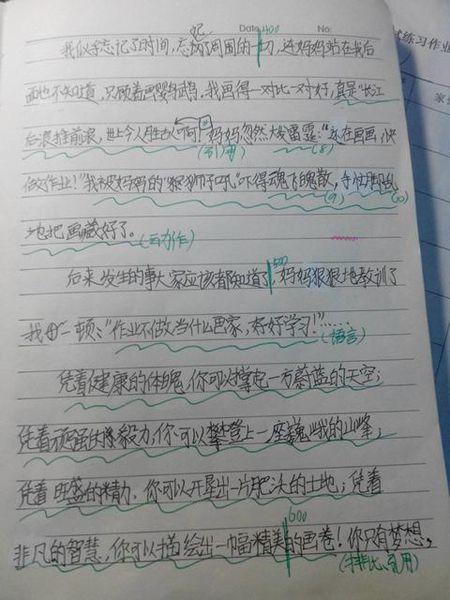 Date 400 No:
我似乎忘记了时间,忘记了周围的一切,连妈妈站在我后
面也不知道,只顾着画鹦鹉。我画得一对比一对好,真是"长江
后浪推前浪,世上今人胜古人"啊!妈妈忽然大发雷霆:"还在画画,快
(引用) (8)
做作业!"我被妈妈的"狮子吼"吓得魂飞魄散,手忙脚乱
(9) (10)
地把画藏好了。(云力作)
后来发生的事大家应该都知道了,妈妈狠狠地教训了
500
我一顿:"作业不做,当什么画家,好好学习!"……
(语言)
凭着健康的体魄,你可以撑起一方蔚蓝的天空;
凭着顽强的毅力,你可以攀登上一座巍峨的山峰;
凭着旺盛的精力,你可以开垦出一片肥沃的土地;凭着
600
非凡的智慧,你可以描绘出一幅精美的画卷!你只有梦想,
(排比、引用)
试练习作业